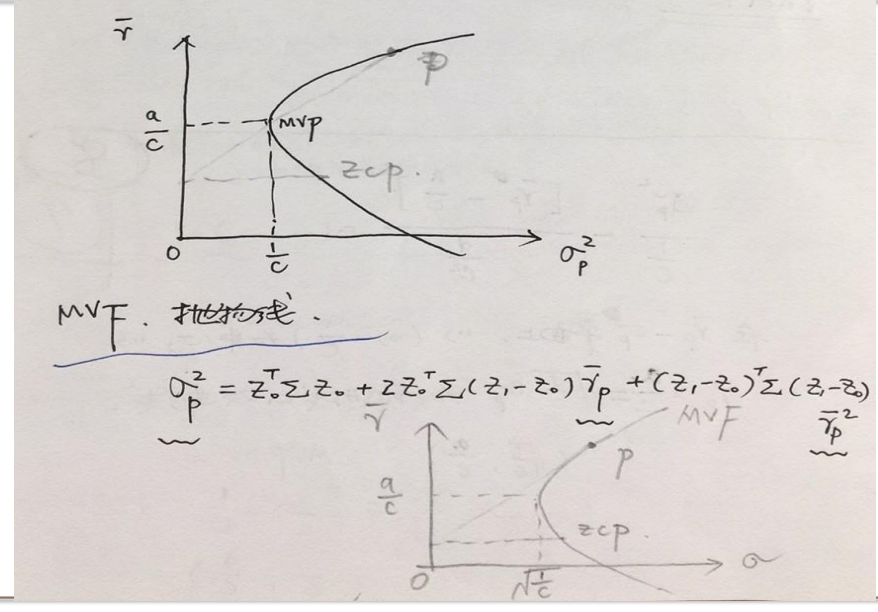 r̄
P
a/c
MVP
zcp.
0
1/c
σ_p^2
MVF. 抛物线.
σ_p^2 = Z_0^T Σ Z_0 + 2 Z_0^T Σ (Z_1 - Z_0) r̄_p + (Z_1 - Z_0)^T Σ (Z_1 - Z_0) r̄_p^2
r̄
MVF
P
a/c
zcp.
0
√(1/c)
σ